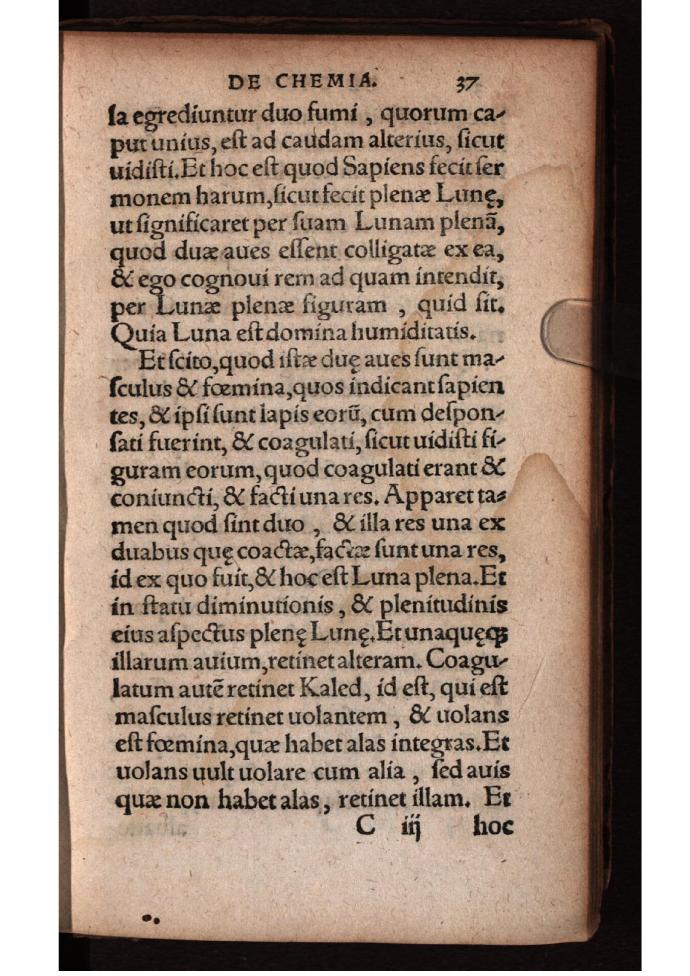 DE CHEMIA. 37
ſa egrediuntur duo fumi , quorum ca-
put unius, eſt ad caudam alterius, ſicut
uidiſti. Et hoc eſt quod Sapiens fecit ſer
monem harum, ſicut fecit plenæ Lunę,
ut ſignificaret per ſuam Lunam plenã,
quod duæ aues eſſent colligatæ ex ea,
& ego cognoui rem ad quam intendit,
per Lunæ plenæ figuram , quid ſit.
Quia Luna eſt domina humiditatis.
Et ſcito, quod iſtæ duę aues ſunt ma-
ſculus & fœmina, quos indicant ſapien
tes, & ipſi ſunt lapis eorũ, cum deſpon-
ſati fuerint, & coagulati, ſicut uidiſti fi-
guram eorum, quod coagulati erant &
coniuncti, & facti una res. Apparet ta-
men quod ſint duo , & illa res una ex
duabus quę coactæ, factæ ſunt una res,
id ex quo fuit, & hoc eſt Luna plena. Et
in ſtatu diminutionis , & plenitudinis
eius aſpectus plenę Lunę. Et unaquęꝗ
illarum auium, retinet alteram. Coagu-
latum autẽ retinet Kaled, id eſt, qui eſt
maſculus retinet uolantem , & uolans
eſt fœmina, quæ habet alas integras. Et
uolans uult uolare cum alia , ſed auis
quæ non habet alas, retinet illam. Et
C iij hoc